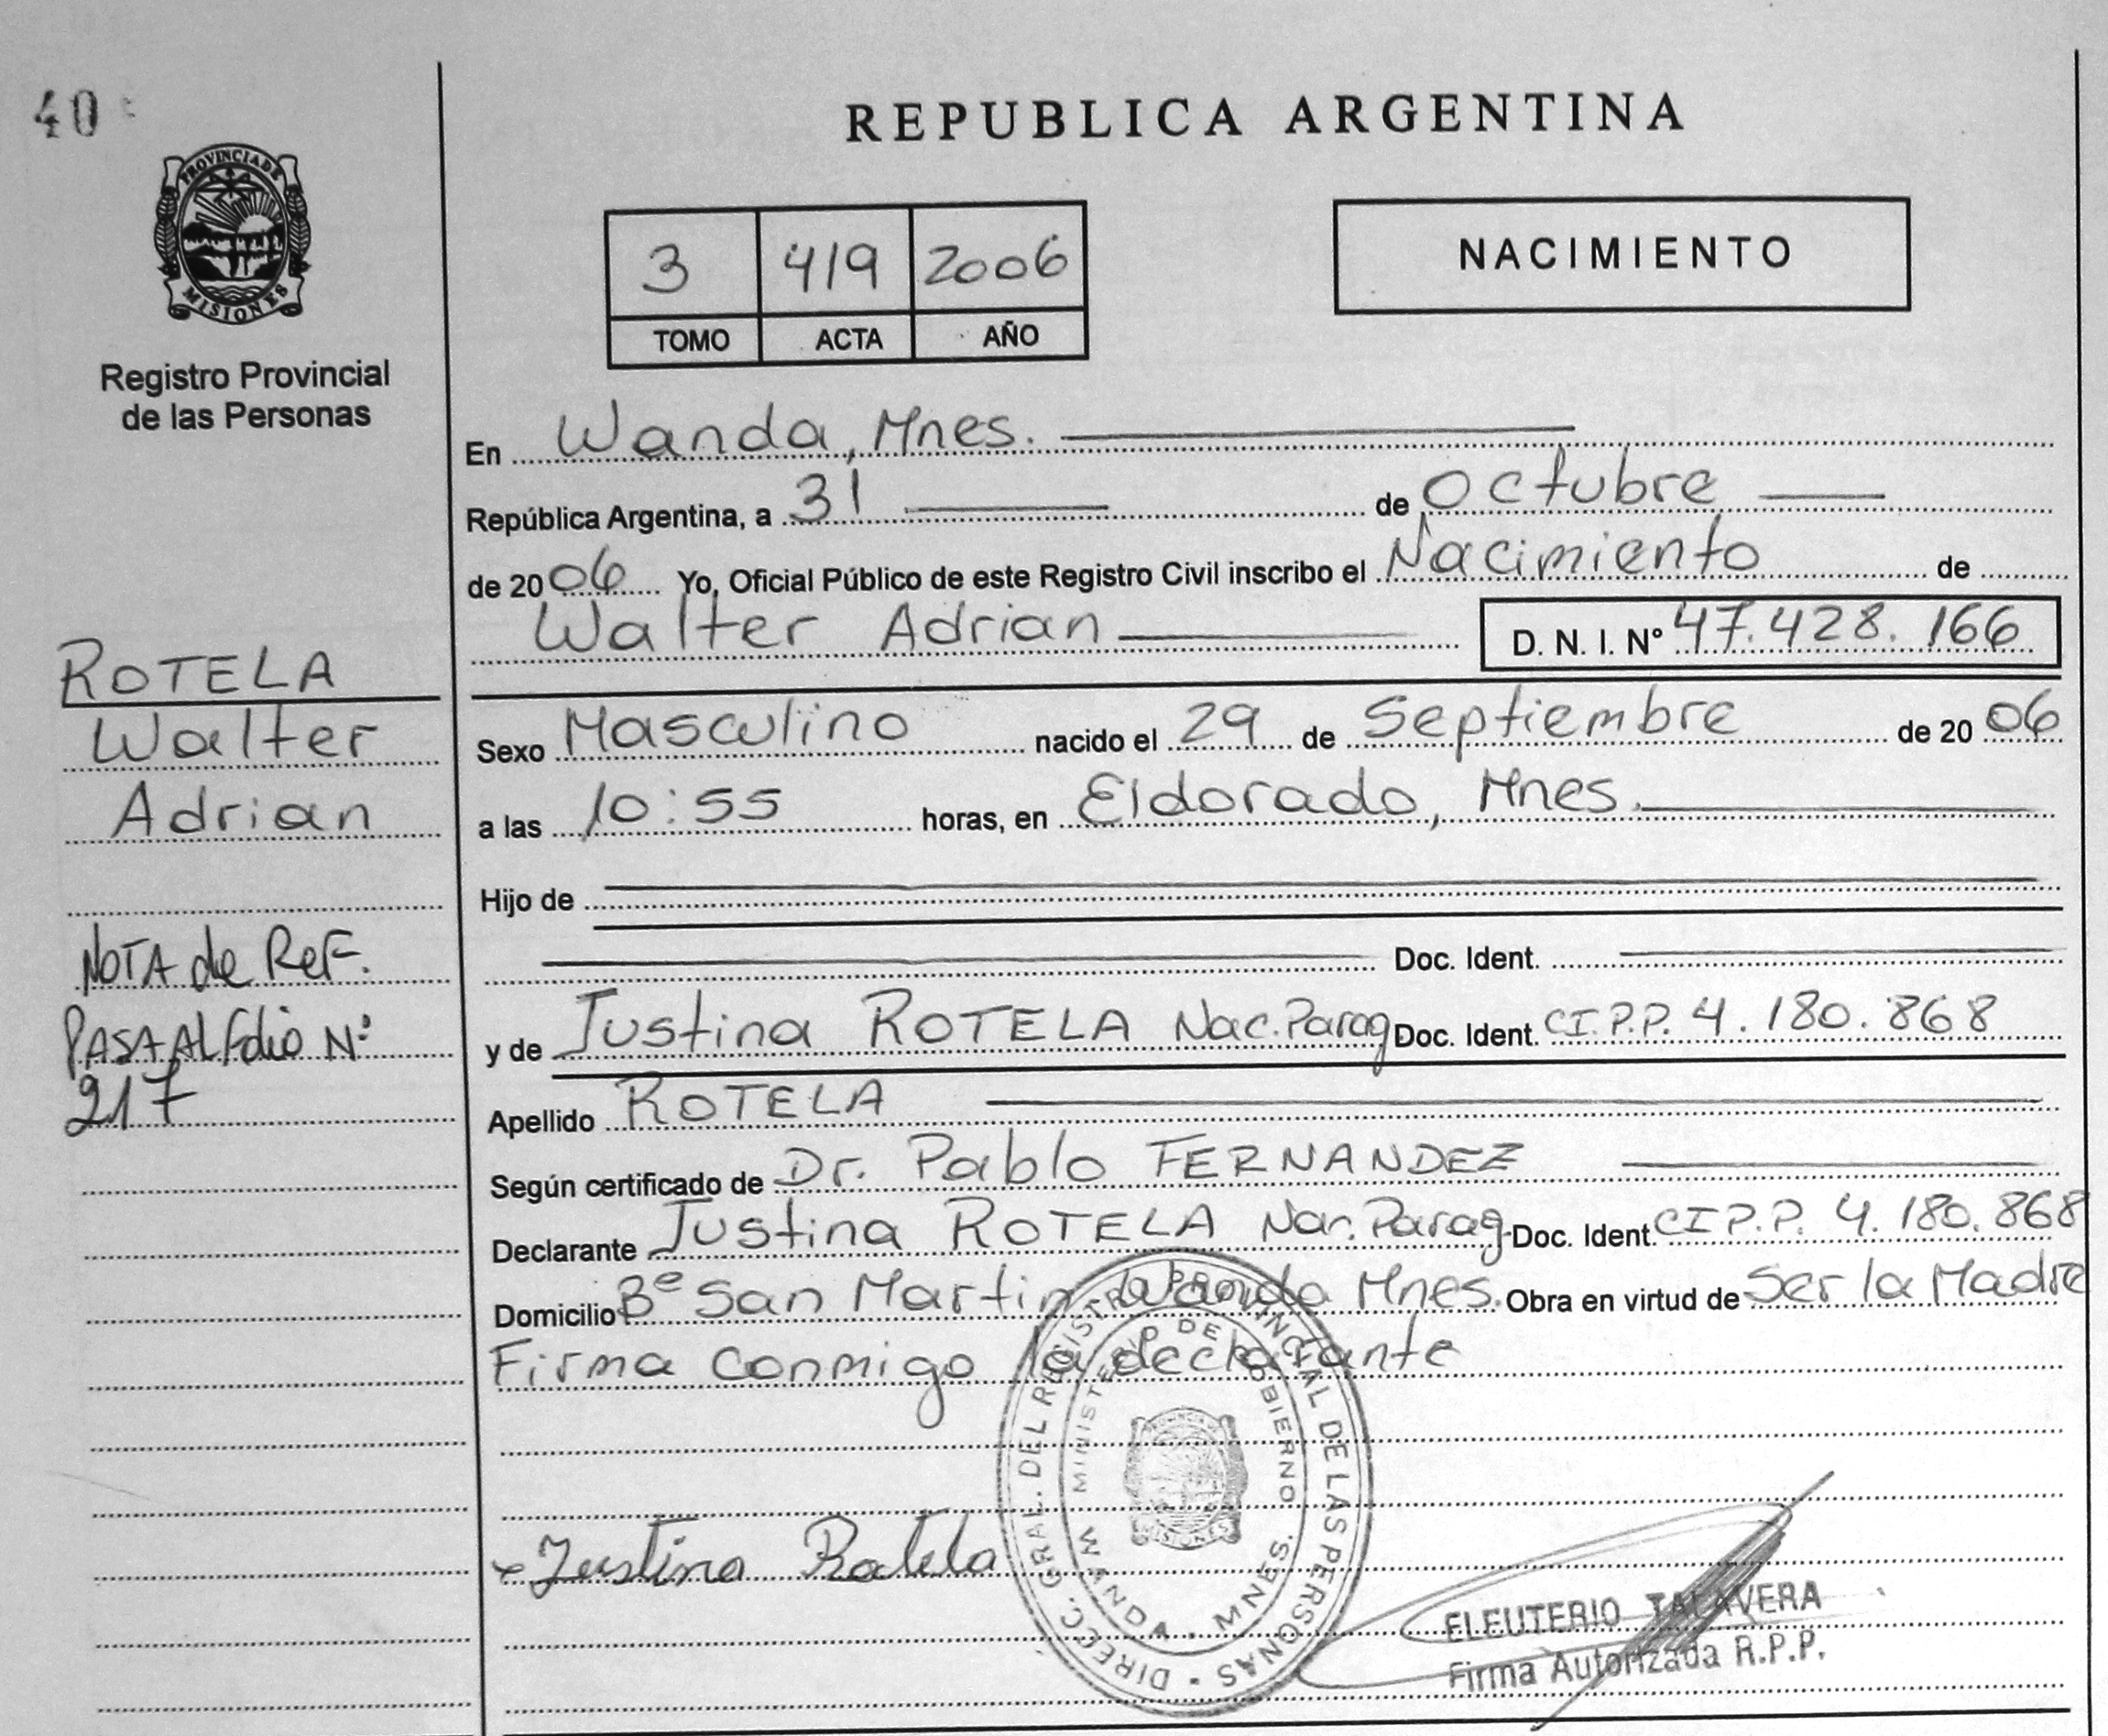 40
PROVINCIA DE
MISIONES
Registro Provincial
de las Personas
ROTELA
Walter
Adrian
NOTA de ReF.
PASA AL Folio Nº
217
REPUBLICA ARGENTINA
3 419 2006
TOMO ACTA AÑO
NACIMIENTO
En Wanda, Mnes.
República Argentina, a 31 de Octubre
de 2006 Yo, Oficial Público de este Registro Civil inscribo el Nacimiento de
Walter Adrian D. N. I. Nº 47.428.166
Sexo Masculino nacido el 29 de Septiembre de 2006
a las 10:55 horas, en Eldorado, Mnes.
Hijo de
Doc. Ident.
y de Justina ROTELA Nac. Parag Doc. Ident. C.I.P.P. 4.180.868
Apellido ROTELA
Según certificado de Dr. Pablo FERNANDEZ
Declarante Justina ROTELA Nac. Parag Doc. Ident. CI P.P. 4.180.868
Domicilio Bº San Martin Wanda Mnes. Obra en virtud de Ser la Madre
Firma conmigo la declarante
Justina Rotela
DIRECC. GRAL. DEL REGISTRO PROVINCIAL DE LAS PERSONAS
MINISTERIO DE GOBIERNO
WANDA - MNES.
ELEUTERIO TALAVERA
Firma Autorizada R.P.P.